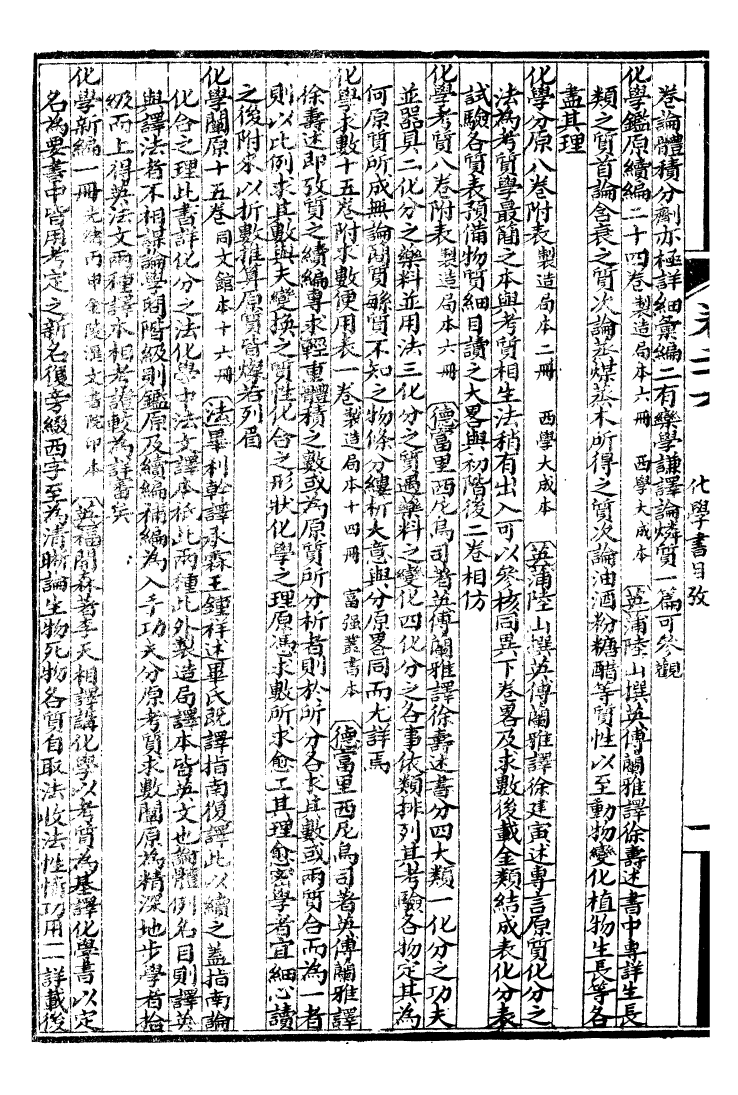 化學書目攷
卷論體積分劑亦極詳細彙編二有欒學謙譯論燐質一篇可參觀
化學鑑原續編二十四卷 製造局本六冊 西學大成本 英蒲陸山撰英傅蘭雅譯徐壽述書中專詳生長
類之質首論含衰之質次論蒸煤蒸木所得之質次論油酒粉糖醋等質性以至動物變化植物生長等各
盡其理
化學分原八卷附表 製造局本二冊 西學大成本 英蒲陸山撰英傅蘭雅譯徐建寅述專言原質化分之
法為考質學最簡之本與考質相生法稍有出入可以參核同異下卷畧及求數後載金類結成表化分表
試驗各質表預備物質細目讀之大畧與初階後二卷相仿
化學考質八卷附表 製造局本六冊 德富里西尼烏司著英傅蘭雅譯徐壽述書分四大類一化分之功夫
並器具二化分之藥料並用法三化分之質遇藥料之變化四化分之各事依類排列其考驗各物定其為
何原質所成無論簡質緐質不知之物條分縷析大意與分原畧同而尤詳焉
化學求數十五卷附求數便用表一卷 製造局本十四冊 富强叢書本 德富里西尼烏司著英傅蘭雅譯
徐壽述即攷質之續編專求輕重體積之數或為原質所分析者則於所分各求其數或兩質合而為一者
則以比例求其數與夫變換之質性化合之形狀化學之理原憑求數所求愈工其理愈密學者宜細心讀
之後附求以折數推算原質皆燦若列眉
化學闡原十五卷 同文館本十六冊 法畢利幹譯承霖王鐘祥述畢氏既譯指南復譯此以續之蓋指南論
化合之理此書詳化分之法化學中法文譯本祇此兩種此外製造局譯本皆英文也論體例名目則譯英
與譯法者不相謀論學問階級則鑑原及續編補編為入手功夫分原考質求數闡原為精深地步學者拾
級而上得英法文兩種譯本相考證較為詳審矣
化學新編一冊 光緒丙申金陵滙文書院印本 英福開森著李天相譯講化學以考質為基譯化學書以定
名為要書中皆用考定之新名復旁綴西字至為清晰論生物死物各質自取法收法性情功用一一詳載後